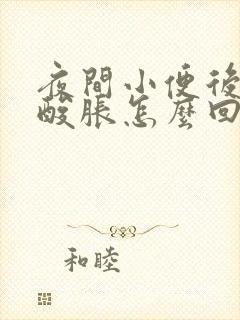 夜間小便後
酸脹怎麼回
和睦